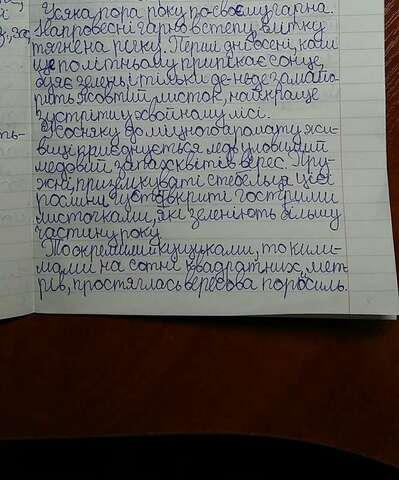 Усяка пора року по-своєму гарна.
Напровесні гарно в степу, влітку
тягне на річку. Перші дні осені, коли
ще по літньому припікає сонце,
буяє зелень і тільки де-не-де замайо-
рить жовтий листок, найкраще
зустріти у хвойному лісі.
У сосняку до міцного аромату жи-
виці приєднується ледь уловимий
медовий запах квітів верес. Пру-
жні, призкуваті стебельця цієї
рослини густо вкриті гострими
листочками, які зеленіють більшу
частину року
То окремими куцуками, то кили-
мами на сотні квадратних мет
рів, простяглась вересова поросль.